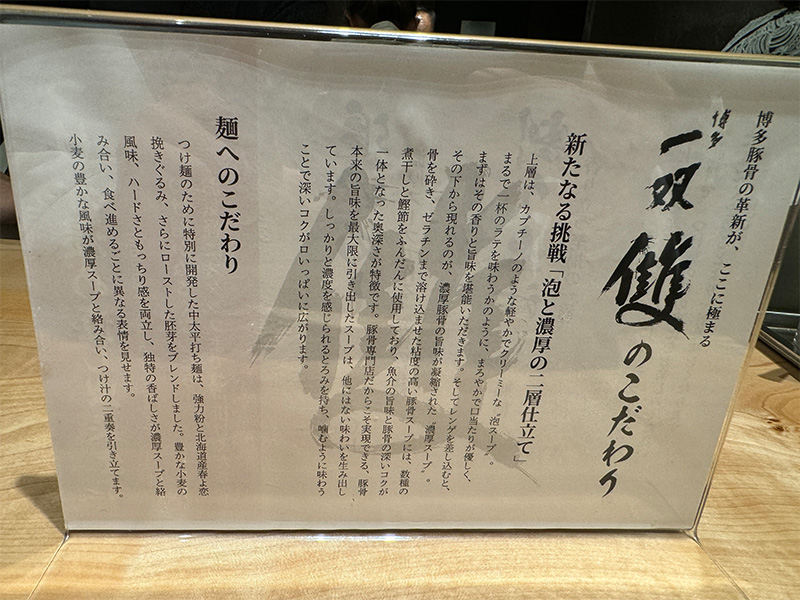 博多豚骨の革新が、ここに極まる
博多
一双 雙のこだわり
新たなる挑戦「泡と濃厚の二層仕立て」
上層は、カプチーノのような軽やかでクリーミーな“泡スープ”。
まるで一杯のラテを味わうかのように、まろやかで口当たりが優しく、
まずはその香りと旨味を堪能いただきます。そしてレンゲを差し込むと、
その下から現れるのが、濃厚豚骨の旨味が凝縮された“濃厚スープ”。
骨を砕き、ゼラチンまで溶け込ませた粘度の高い豚骨スープには、数種の
煮干しと鰹節をふんだんに使用しており、魚介の旨味と豚骨の深いコクが
一体となった奥深さが特徴です。豚骨専門店だからこそ実現できる、豚骨
本来の旨味を最大限に引き出したスープは、他にはない味わいを生み出し
ています。しっかりと濃度を感じられるとろみを持ち、噛むように味わう
ことで深いコクが口いっぱいに広がります。
麺へのこだわり
つけ麺のために特別に開発した中太平打ち麺は、強力粉と北海道産春よ恋
挽きぐるみ、さらにローストした胚芽をブレンドしました。豊かな小麦の
風味、ハードさともっちり感を両立し、独特の香ばしさが濃厚スープと絡
み合い、食べ進めるごとに異なる表情を見せます。
小麦の豊かな風味が濃厚スープと絡み合い、つけ汁の二重奏を引き立てます。